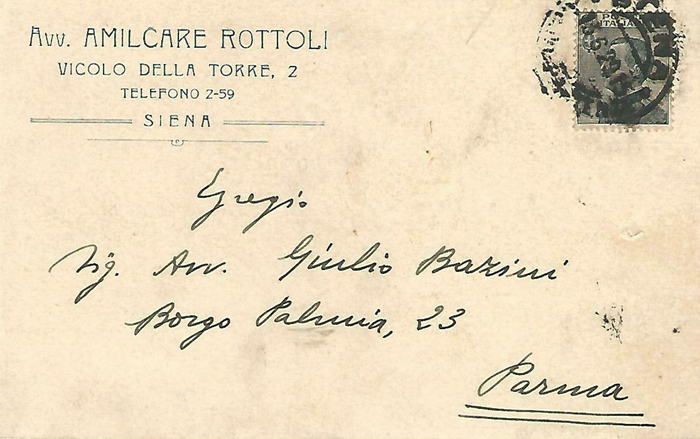 Avv. AMILCARE ROTTOLI
VICOLO DELLA TORRE, 2
TELEFONO 2-59
SIENA
SIENA
Egregio
Sig. Avv. Giulio Bazini
Borgo Palmia, 23
Parma